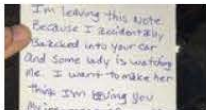 I'm leaving this Note
Because I accidentally
Backed into your car
and some lady is watching
me. I want to make her
think I'm giving you
My